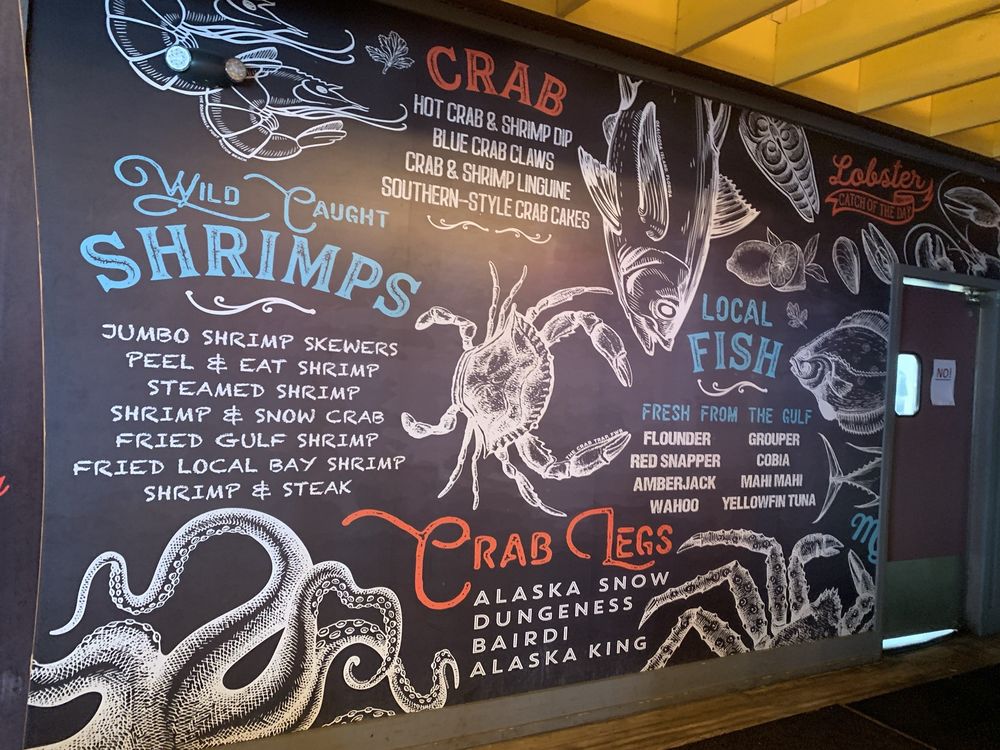 CRAB
HOT CRAB & SHRIMP DIP
BLUE CRAB CLAWS
CRAB & SHRIMP LINGUINE
SOUTHERN-STYLE CRAB CAKES
WILD CAUGHT
SHRIMPS
JUMBO SHRIMP SKEWERS
PEEL & EAT SHRIMP
STEAMED SHRIMP
SHRIMP & SNOW CRAB
FRIED GULF SHRIMP
FRIED LOCAL BAY SHRIMP
SHRIMP & STEAK
THE CRAB TRAP FWB
Lobster
CATCH OF THE DAY
LOCAL
FISH
FRESH FROM THE GULF
FLOUNDER GROUPER
RED SNAPPER COBIA
AMBERJACK MAHI MAHI
WAHOO YELLOWFIN TUNA
CRAB LEGS
ALASKA SNOW
DUNGENESS
BAIRDI
ALASKA KING
NO!